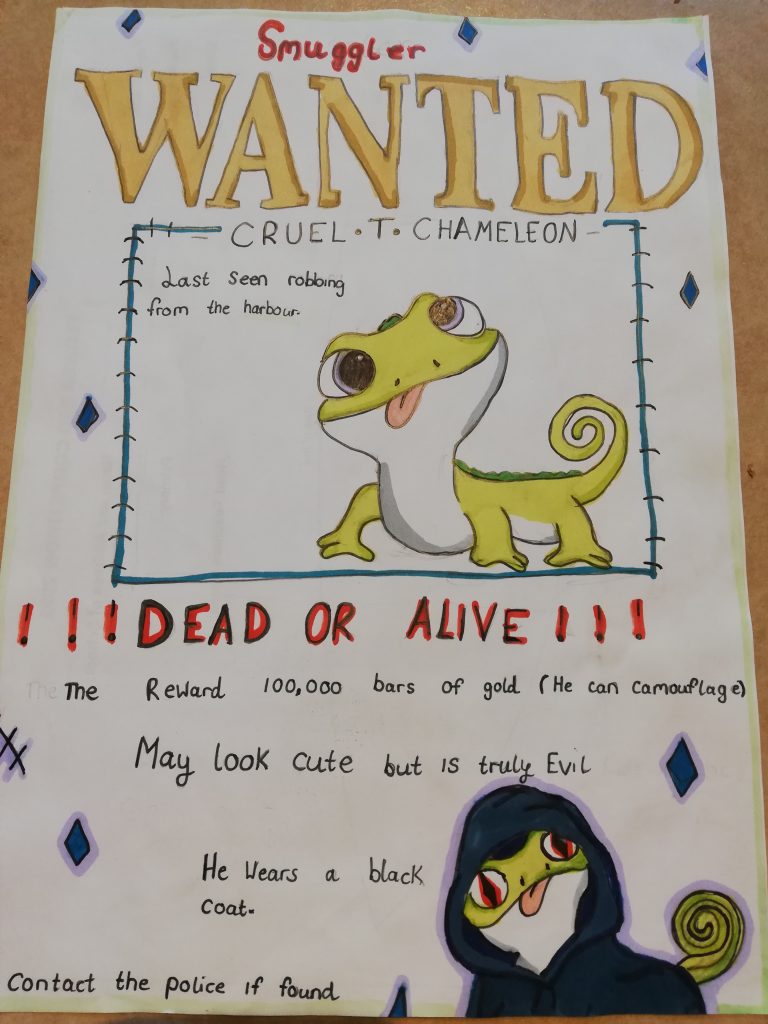 Smuggler
WANTED
- CRUEL • T • CHAMELEON -
Last seen robbing
from the harbour.
! ! ! DEAD OR ALIVE ! ! !
The Reward 100,000 bars of gold (He can camouflage)
May look cute but is truly Evil
He Wears a black
coat.
Contact the police if found